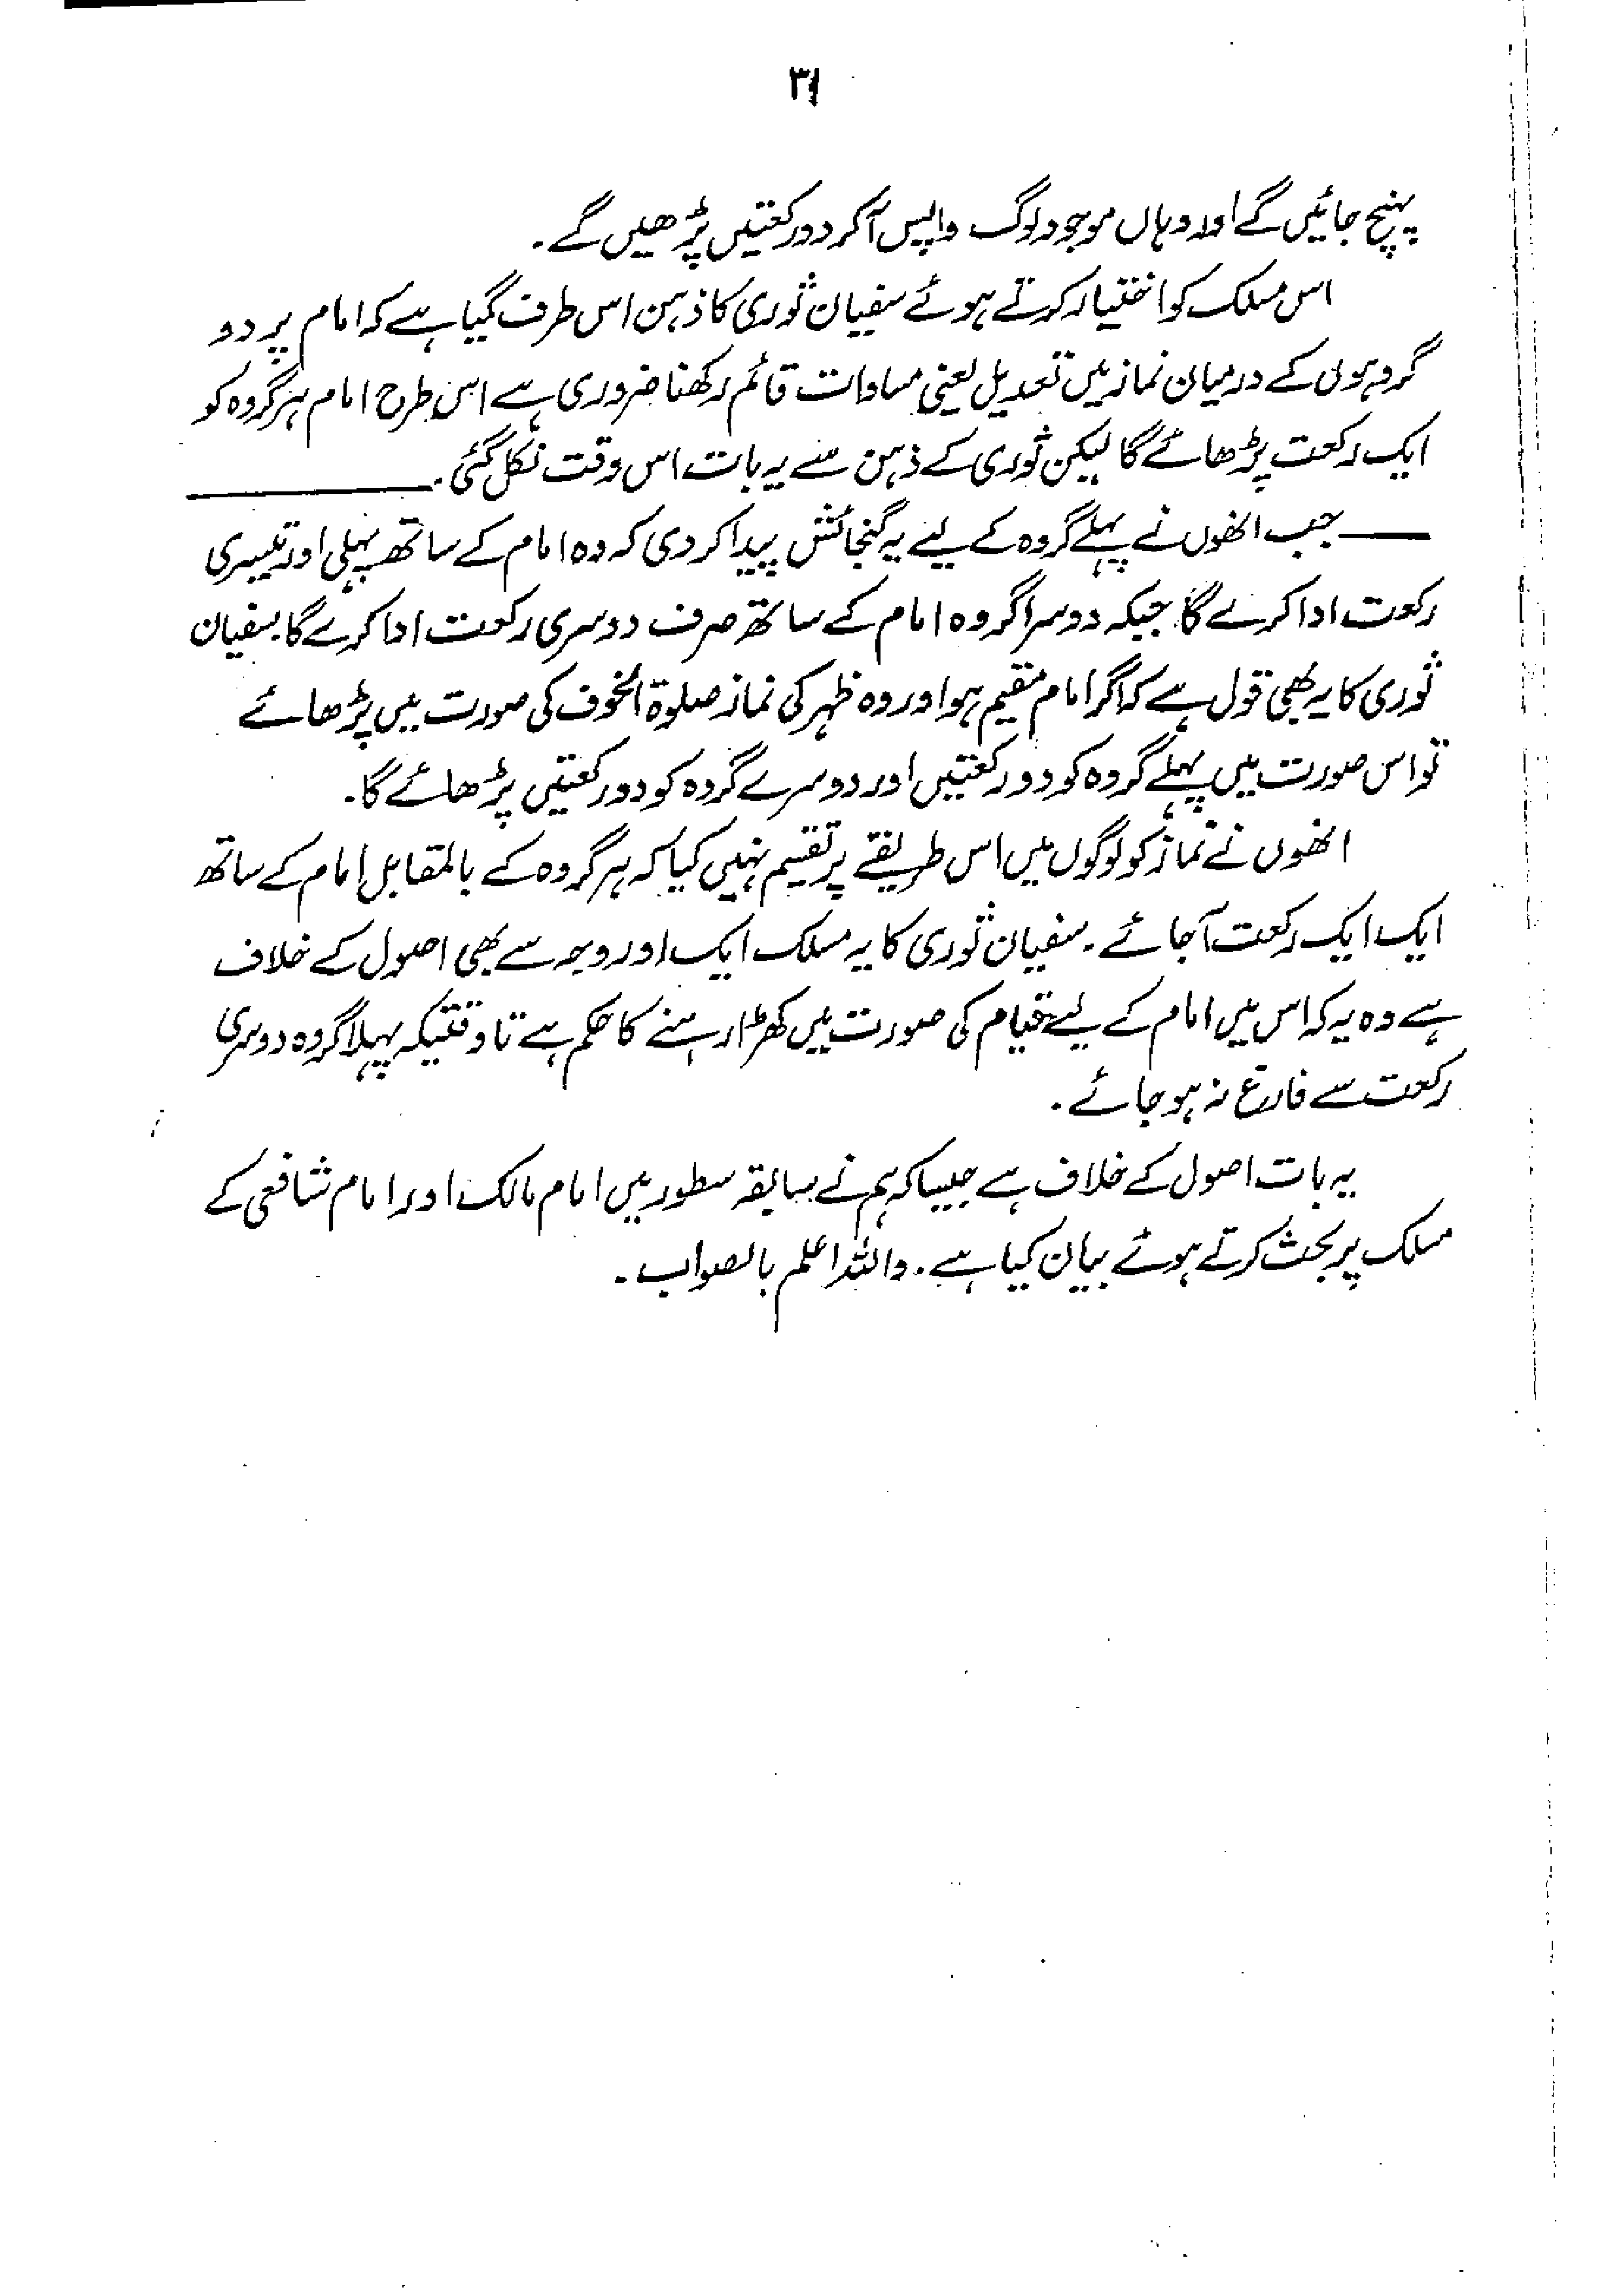 ۳۱
پہنچ جائیں گے اور وہاں موجود لوگ واپس آکر دو رکعتیں پڑھیں گے۔
اس مسلک کو اختیار کرتے ہوئے سفیان ثوری کا ذہن اس طرف گیا ہے کہ امام پر دو
گروہوں کے درمیان نماز میں تعدیل یعنی مساوات قائم رکھنا ضروری ہے اس طرح امام ہر گروہ کو
ایک رکعت پڑھائے گا لیکن ثوری کے ذہن سے یہ بات اس وقت نکل گئی۔ ـــــــــ
ــــ جب انھوں نے پہلے گروہ کے لیے یہ گنجائش پیدا کر دی کہ وہ امام کے ساتھ پہلی اور تیسری
رکعت ادا کرے گا جبکہ دوسرا گروہ امام کے ساتھ صرف دوسری رکعت ادا کرے گا۔ سفیان
ثوری کا یہ بھی قول ہے کہ اگر امام مقیم ہو اور وہ ظہر کی نماز صلوۃ الخوف کی صورت میں پڑھائے
تو اس صورت میں پہلے گروہ کو دو رکعتیں اور دوسرے گروہ کو دو رکعتیں پڑھائے گا۔
انھوں نے نماز کو لوگوں میں اس طریقے پر تقسیم نہیں کیا کہ ہر گروہ کے بالمقابل امام کے ساتھ
ایک ایک رکعت آجائے۔ سفیان ثوری کا یہ مسلک ایک اور وجہ سے بھی اصول کے خلاف
ہے وہ یہ کہ اس میں امام کے لیے قیام کی صورت میں کھڑا رہنے کا حکم ہے تاوقتیکہ پہلا گروہ دوسری
رکعت سے فارغ نہ ہو جائے۔
یہ بات اصول کے خلاف ہے جیسا کہ ہم نے سابقہ سطور میں امام مالک اور امام شافعی کے
مسلک پر بحث کرتے ہوئے بیان کیا ہے۔ واللہ اعلم بالصواب۔